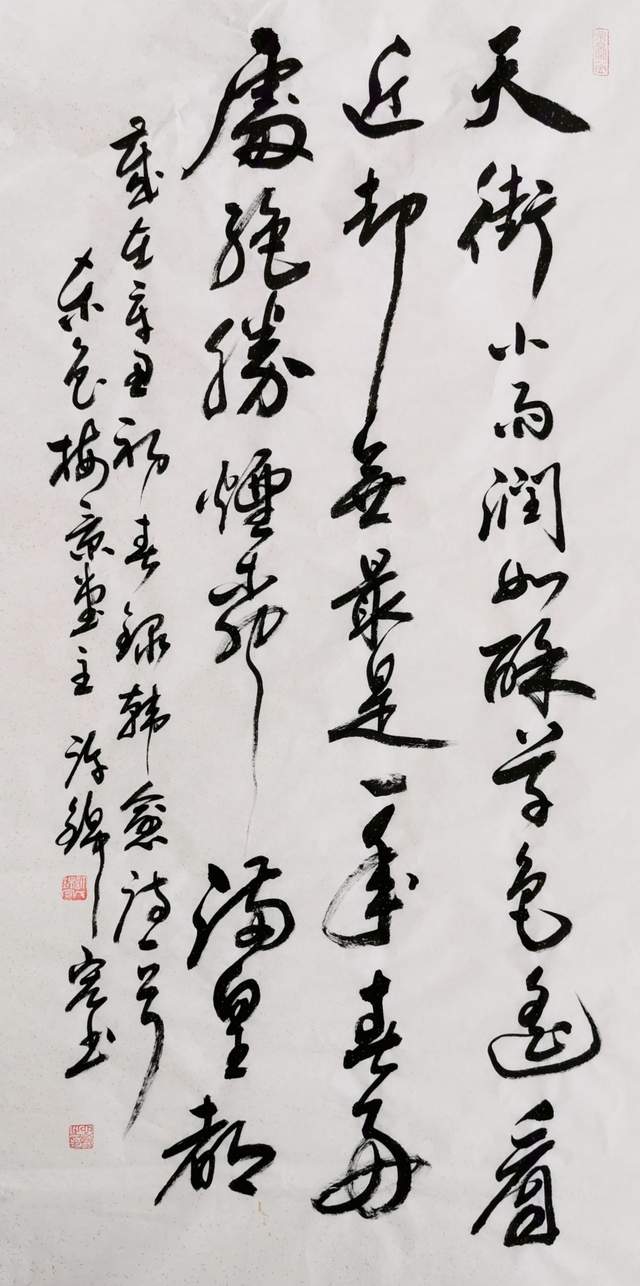 天街小雨润如酥草色遥看
近却無最是一年春好
處絶勝煙柳满皇都
歲在辛丑初春録韩愈诗一首
梅景堂主